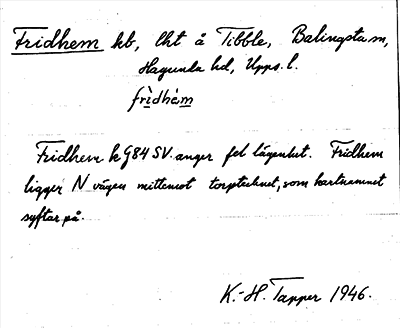 Fridhem kb, lht å Tibble, Balingsta sn,
Hagunda hd, Upps. l.
frìdhàm
Fridhem k G84 SV. anger fel lägenhet. Fridhem
ligger N vägen mittemot torptecknet, som kartnamnet
syftar på.
K.-H. Tapper 1946.